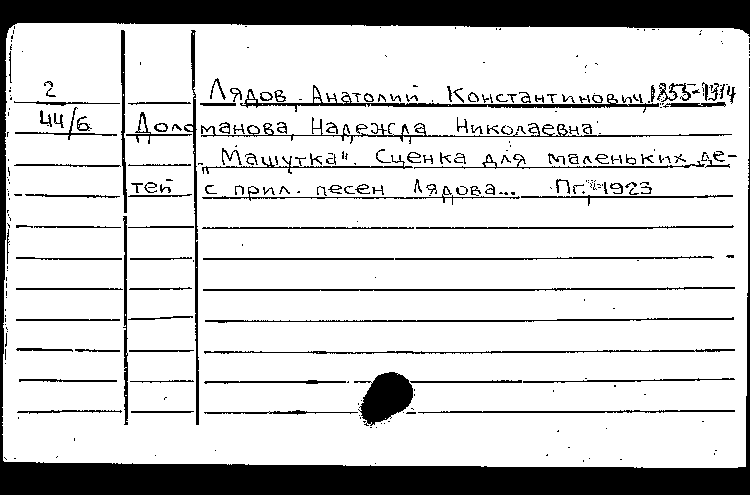 2
44/6
Лядов, Анатолий Константинович, 1855-1914
Доломанова, Надежда Николаевна.
"Машутка". Сценка для маленьких де-
тей с прил. песен Лядова... Пг., 1923